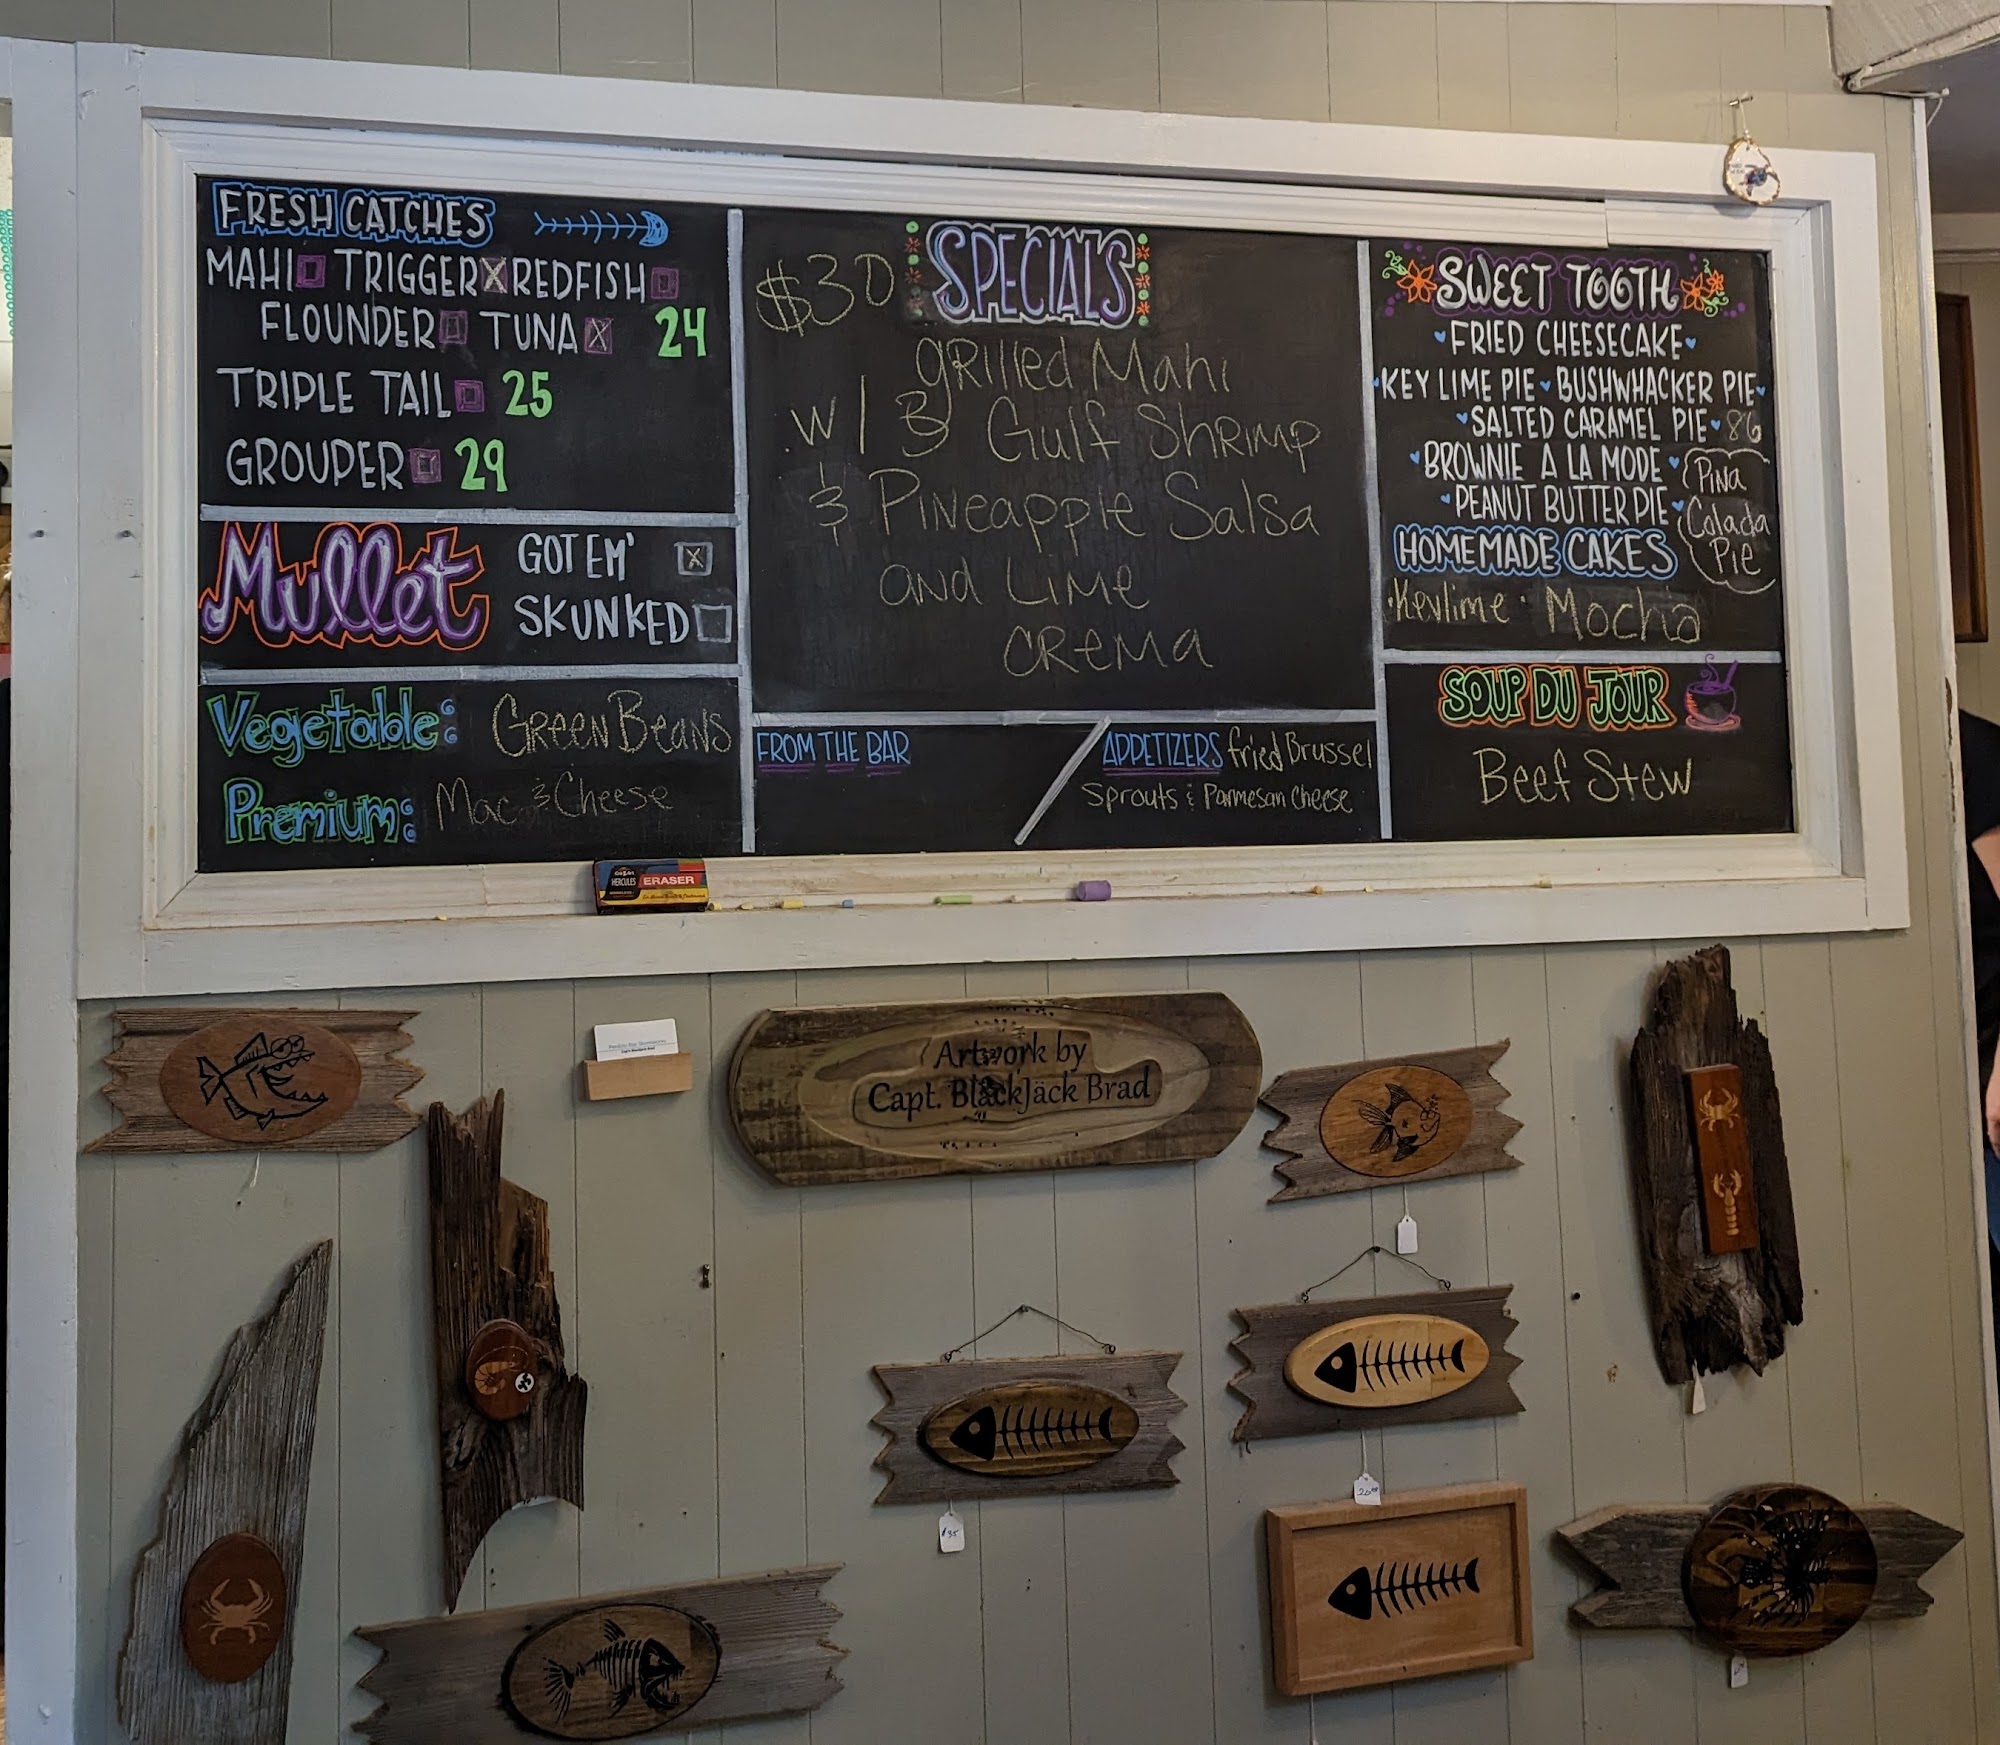 FRESH CATCHES
MAHI TRIGGER X REDFISH
FLOUNDER TUNA X 24
TRIPLE TAIL 25
GROUPER 29
Mullet
GOT EM' X
SKUNKED
Vegetable: GREEN BEANS
Premium: Mac & Cheese
$30 SPECIALS
GRilled Mahi
w/ 3 Gulf Shrimp
& Pineapple Salsa
and Lime
CREMA
FROM THE BAR
APPETIZERS fried Brussel
Sprouts & Parmesan cheese
SWEET TOOTH
FRIED CHEESECAKE
KEY LIME PIE BUSHWHACKER PIE
SALTED CARAMEL PIE 86
BROWNIE A LA MODE
PEANUT BUTTER PIE
PiNA
Colada
Pie
HOMEMADE CAKES
Keylime Mocha
SOUP DU JOUR
Beef Stew
HERCULES ERASER
Artwork by
Capt. BlackJäck Brad
$35